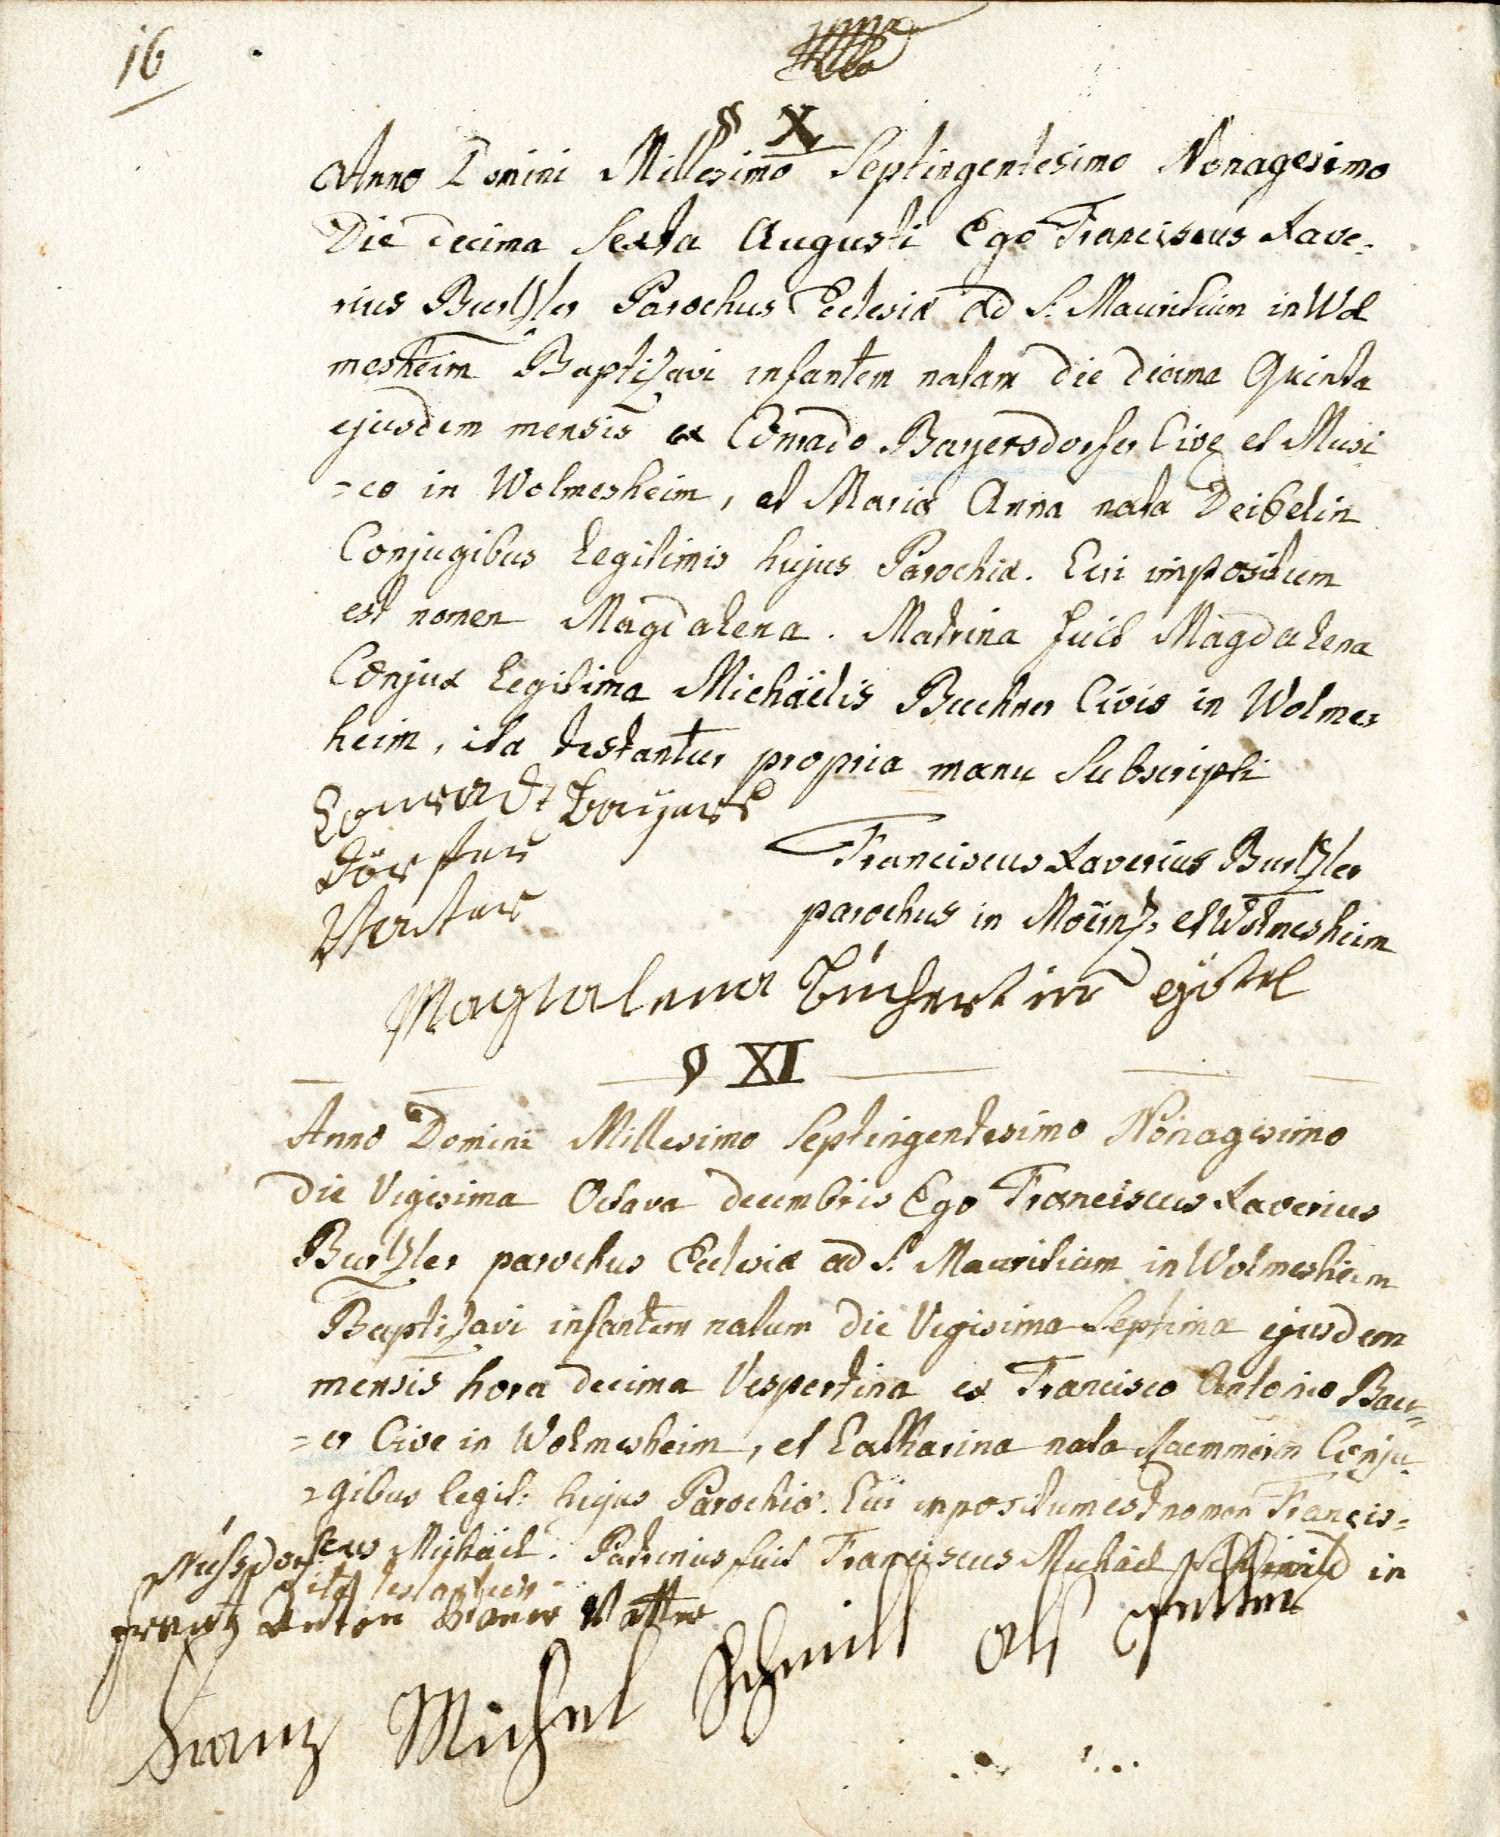 16
§ X
Anno Domini Millesimo Septingentesimo Nonagesimo
Die decima Sexta Augusti Ego Franciscus Xave=
rius Burtzler Parochus Ecclesiæ ad S. Mauritium in Wol
mesheim Baptizavi infantem natam die decima Quinta
ejusdem mensis ex Conrado Bayersdorfer Cive et Musi
=co in Wolmesheim, et Maria Anna nata Deibelin
Conjugibus Legitimis hujus Parochiæ. Cui impositum
est nomen Magdalena. Matrina fuit Magdalena
Conjux Legitima Michäelis Buchner Civis in Wolmes
heim, ita testantur propria manu Subscripti
Conradt Bayers
dörfer
Vatter
Franciscus Xaverius Burtzler
parochus in Mörtz: et Wolmesheim
Magdalena Buchertin götel
§ XI
Anno Domini Millesimo Septingentesimo Nonagesimo
die Vigesima Octava decembris Ego Franciscus Xaverius
Burtzler parochus Ecclesiæ ad S. Mauritium in Wolmesheim
Baptizavi infantem natum die Vigesima Septima ejusdem
mensis hora decima Vespertina ex Francisco Antonio Bau=
=er Cive in Wolmesheim, et Catharina nata Haemmerin Conju
=gibus legit: hujus Parochiæ. Cui impositum est nomen Francis=
cus Michäel. Patrinus fuit Franciscus Michäel Schmitd in
Nussdorf ita testantur
frantz Anton Bauer Vatter
Franz Michel Schmitt als